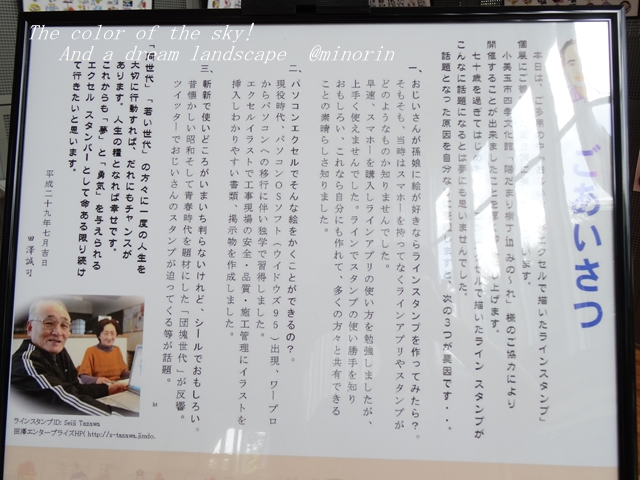 The color of the sky!
And a dream landscape @minorin
ごあいさつ
本日は、ご多用の中
エクセルで描いたラインスタンプ」
個展にご
ます。
小美玉市四季文化館「陽だまり横丁 in みの〜れ」様のご協力により
開催することが出来ました
上げます。
七十歳を過ぎてはじ
セルで描いたライン スタンプが
こんなに話題になるとは夢にも思いませんでした。
話題となった原因を自分な
次の3つが要因です・・。
一、おじいさんが孫娘に絵が好きならラインスタンプを作ってみたら？。
そもそも、当時はスマホーを持ってなくラインアプリやスタンプが
どのようなものか知りませんでした。
早速、スマホーを購入しラインアプリの使い方を勉強しましたが、
上手く使えませんでした。ラインでスタンプの使い勝手を知り
おもしろい、これなら自分にも作れて、多くの方々と共有できる
ことの素晴らしさ知りました。
二、パソコンエクセルでそんな絵をかくことができるの？。
現役時代、パソコンOSソフト（ウイドウズ95）出現、ワープロ
からパソコンへの移行に伴い独学で習得しました。
エクセルイラストで工事現場の安全・品質・施工管理にイラストを
挿入しわかりやすい書類、掲示物を作成しました。
三、斬新で使いどころがいまいち判らないけれど、シールでおもしろい。
昔懐かしい昭和そして青春時代を題材にした「団塊世代」が反響。
ツイッターでおじいさんのスタンプが迫ってくる等が話題。
世代」「若い世代」の方々に一度の人生を
大切に行動すれば、だれにもチャンスが
あります。人生の糧となれば幸せです。
これからも「夢」と「勇気」を与えられる
エクセル スタンパーとして命ある限り続け
て行きたいと思います。
平成二十九年七月吉日
田澤誠司
ラインスタンプID: Seiji Tazawa
田澤エンタープライズHP( http://s-tazawa.jimdo.